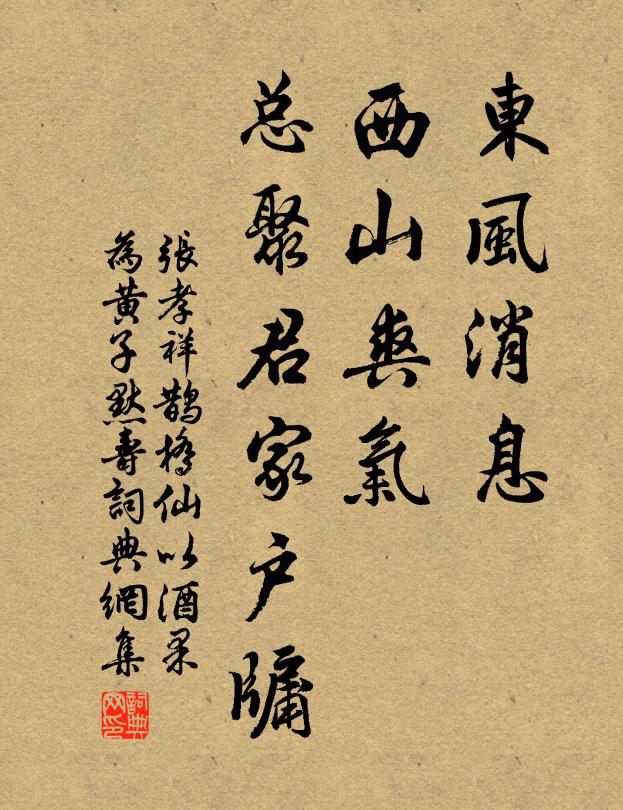 東風消息
西山爽氣
总聚君家户牖
張孝祥鵲橋仙以酒果
為黄子默壽詞典網集
詞典
网印